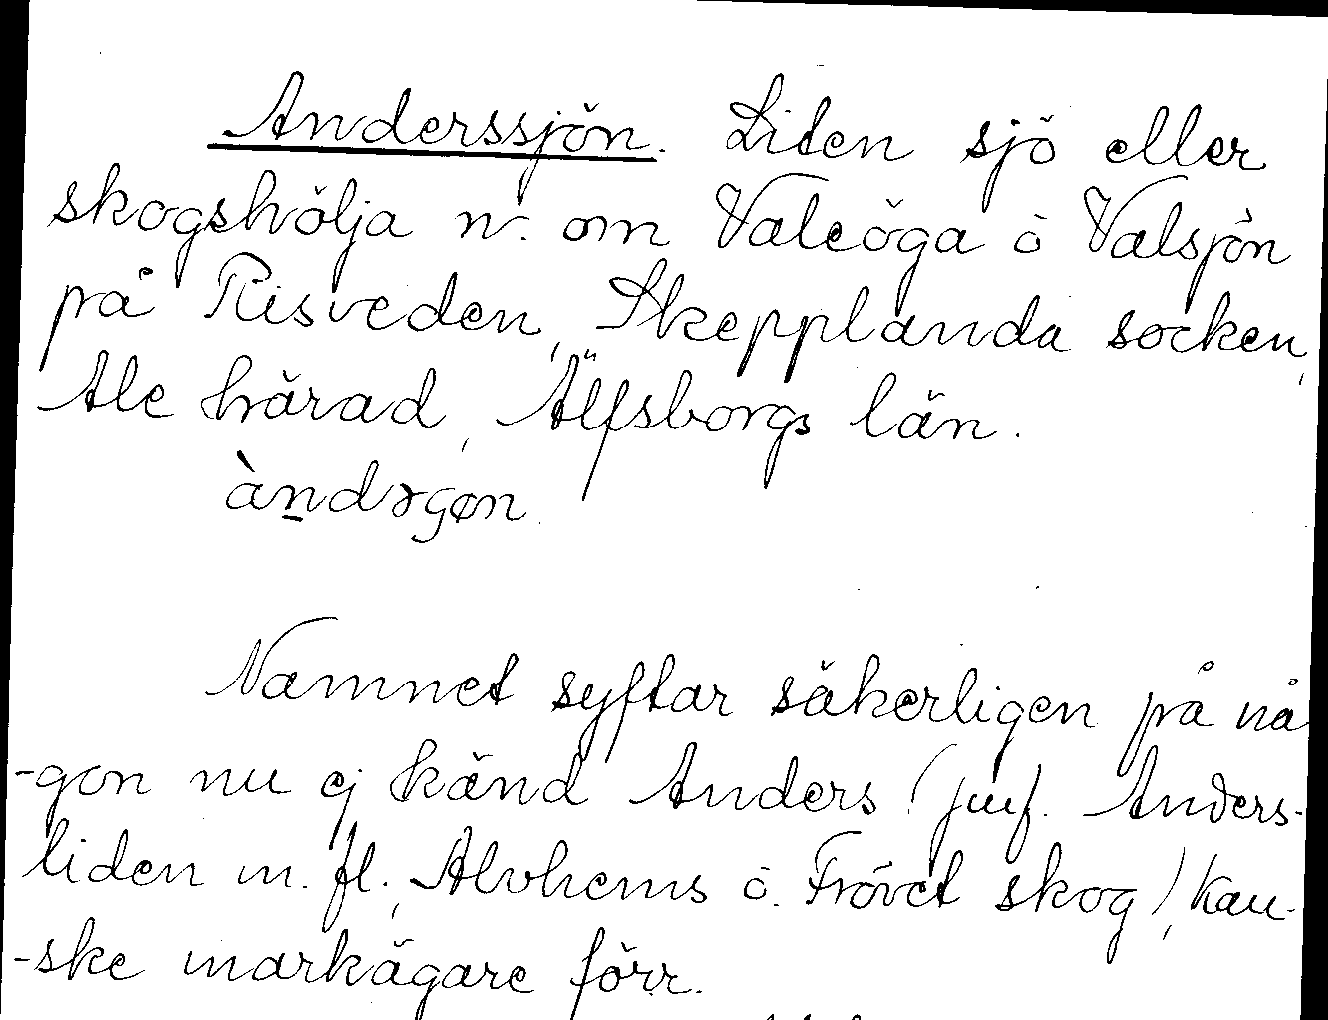 Anderssjön. Liten sjö eller
skogshölja n. om Valeöga ö Valsjön
på Risveden, Skepplanda socken,
Ale härad, Älfsborgs län.
àndɤçøn
Namnet syftar säkerligen på nå
-gon nu ej känd Anders (jmf. Anders-
liden m. fl., Alvhems ö. Frövet skog), kan-
-ske markägare förr.